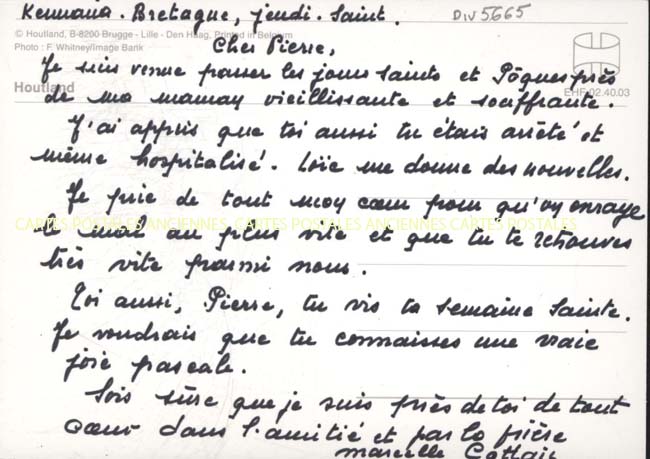 Kermaria. Bretagne, jeudi-Saint. DIV5665
© Houtland, B-8200 Brugge - Lille - Den Haag, Printed in Belgium
Photo : F. Whitney/Image Bank
Cher Pierre,
Je suis venue passer les jours saints et Pâques près
Houtland
EHF 02.40.03
de ma maman vieillissante et souffrante.
J'ai appris que toi aussi tu étais arrêté et
même hospitalisé. Loïc me donne des nouvelles.
Je prie de tout mon cœur pour qu'on enraye
CARTES POSTALES ANCIENNES, CARTES POSTALES ANCIENNES CARTES POSTALES
le mal au plus vite et que tu te retrouves
très vite parmi nous.
Toi aussi, Pierre, tu vis ta semaine Sainte.
Je voudrais que tu connaisses une vraie
joie pascale.
Sois sûre que je suis près de toi de tout
cœur dans l'amitié et par la prière
marcelle